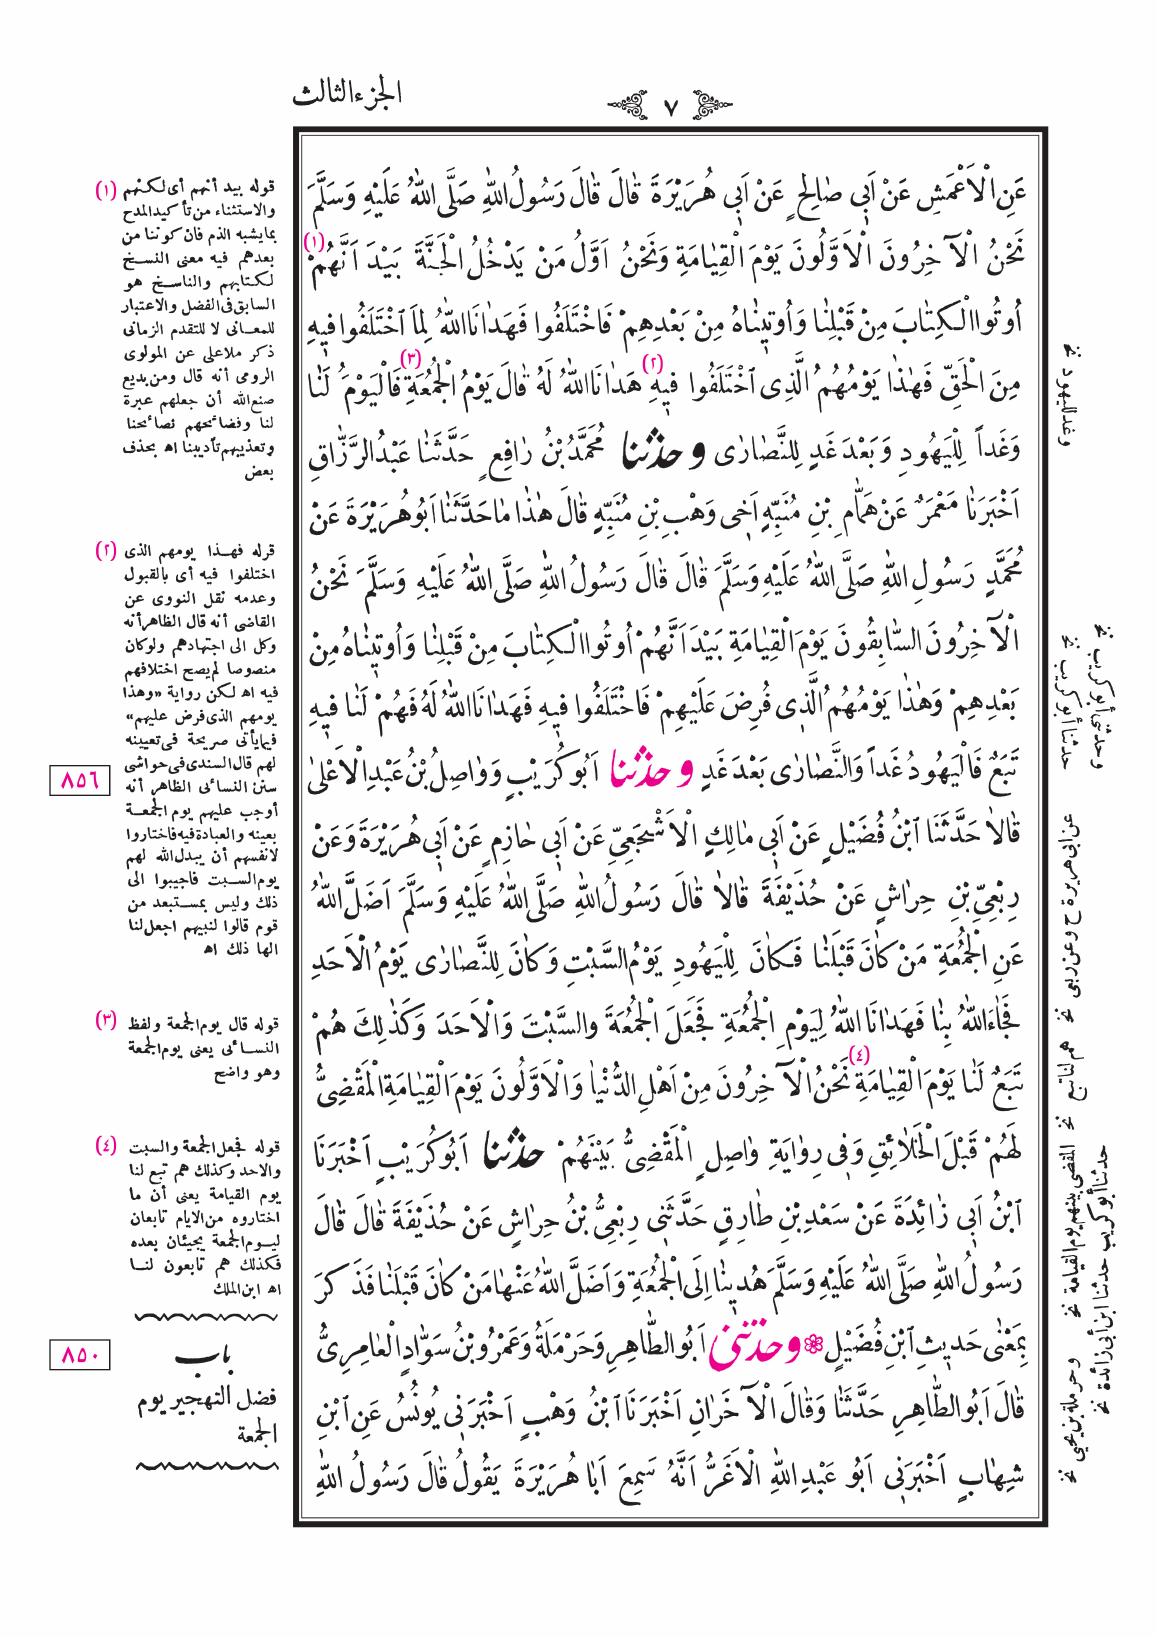 الجزء الثالث
٧
عَنِ الْاَعْمَشِ عَنْ اَبِي صَالِحٍ عَنْ اَبِي هُرَيْرَةَ قَالَ قَالَ رَسُولُ اللّٰهِ صَلَّى اللّٰهُ عَلَيْهِ وَسَلَّمَ
نَحْنُ الْآخِرُونَ الْاَوَّلُونَ يَوْمَ الْقِيَامَةِ وَنَحْنُ اَوَّلُ مَنْ يَدْخُلُ الْجَنَّةَ بَيْدَ اَنَّهُمْ (١)
اُوتُوا الْكِتَابَ مِنْ قَبْلِنَا وَاُوتِينَاهُ مِنْ بَعْدِهِمْ فَاخْتَلَفُوا فَهَدَانَا اللّٰهُ لِمَا اخْتَلَفُوا فِيهِ
مِنَ الْحَقِّ فَهٰذَا يَوْمُهُمُ الَّذِى اخْتَلَفُوا فِيهِ (٢) هَدَانَا اللّٰهُ لَهُ قَالَ يَوْمُ الْجُمُعَةِ (٣) فَالْيَوْمُ لَنَا
وَغَداً لِلْيَهُودِ وَبَعْدَ غَدٍ لِلنَّصَارٰى وحدثنا مُحَمَّدُ بْنُ رَافِعٍ حَدَّثَنَا عَبْدُ الرَّزَّاقِ
اَخْبَرَنَا مَعْمَرٌ عَنْ هَمَّامِ بْنِ مُنَبِّهٍ اَخِى وَهْبِ بْنِ مُنَبِّهٍ قَالَ هٰذَا مَا حَدَّثَنَا اَبُو هُرَيْرَةَ عَنْ
مُحَمَّدٍ رَسُولِ اللّٰهِ صَلَّى اللّٰهُ عَلَيْهِ وَسَلَّمَ قَالَ قَالَ رَسُولُ اللّٰهِ صَلَّى اللّٰهُ عَلَيْهِ وَسَلَّمَ نَحْنُ
الْآخِرُونَ السَّابِقُونَ يَوْمَ الْقِيَامَةِ بَيْدَ اَنَّهُمْ اُوتُوا الْكِتَابَ مِنْ قَبْلِنَا وَاُوتِينَاهُ مِنْ
بَعْدِهِمْ وَهٰذَا يَوْمُهُمُ الَّذِى فُرِضَ عَلَيْهِمْ فَاخْتَلَفُوا فِيهِ فَهَدَانَا اللّٰهُ لَهُ فَهُمْ لَنَا فِيهِ
تَبَعٌ فَالْيَهُودُ غَداً وَالنَّصَارٰى بَعْدَ غَدٍ وحدثنا اَبُو كُرَيْبٍ وَوَاصِلُ بْنُ عَبْدِ الْاَعْلٰى
قَالَا حَدَّثَنَا ابْنُ فُضَيْلٍ عَنْ اَبِى مَالِكٍ الْاَشْجَعِىِّ عَنْ اَبِى حَازِمٍ عَنْ اَبِى هُرَيْرَةَ وَعَنْ
رِبْعِىِّ بْنِ حِرَاشٍ عَنْ حُذَيْفَةَ قَالَا قَالَ رَسُولُ اللّٰهِ صَلَّى اللّٰهُ عَلَيْهِ وَسَلَّمَ اَضَلَّ اللّٰهُ
عَنِ الْجُمُعَةِ مَنْ كَانَ قَبْلَنَا فَكَانَ لِلْيَهُودِ يَوْمُ السَّبْتِ وَكَانَ لِلنَّصَارٰى يَوْمُ الْاَحَدِ
فَجَاءَ اللّٰهُ بِنَا فَهَدَانَا اللّٰهُ لِيَوْمِ الْجُمُعَةِ فَجَعَلَ الْجُمُعَةَ وَالسَّبْتَ وَالْاَحَدَ وَكَذٰلِكَ هُمْ
تَبَعٌ لَنَا يَوْمَ الْقِيَامَةِ (٤) نَحْنُ الْآخِرُونَ مِنْ اَهْلِ الدُّنْيَا وَالْاَوَّلُونَ يَوْمَ الْقِيَامَةِ الْمَقْضِىُّ
لَهُمْ قَبْلَ الْخَلَائِقِ وَفِى رِوَايَةِ وَاصِلٍ الْمَقْضِىُّ بَيْنَهُمْ حدثنا اَبُو كُرَيْبٍ اَخْبَرَنَا
ابْنُ اَبِى زَائِدَةَ عَنْ سَعْدِ بْنِ طَارِقٍ حَدَّثَنِى رِبْعِىُّ بْنُ حِرَاشٍ عَنْ حُذَيْفَةَ قَالَ قَالَ
رَسُولُ اللّٰهِ صَلَّى اللّٰهُ عَلَيْهِ وَسَلَّمَ هُدِينَا اِلَى الْجُمُعَةِ وَاَضَلَّ اللّٰهُ عَنْهَا مَنْ كَانَ قَبْلَنَا فَذَكَرَ
بِمَعْنٰى حَدِيثِ ابْنِ فُضَيْلٍ وحدثنى اَبُو الطَّاهِرِ وَحَرْمَلَةُ وَعَمْرُو بْنُ سَوَّادٍ الْعَامِرِىُّ
قَالَ اَبُو الطَّاهِرِ حَدَّثَنَا وَقَالَ الْآخَرَانِ اَخْبَرَنَا ابْنُ وَهْبٍ اَخْبَرَنِى يُونُسُ عَنِ ابْنِ
شِهَابٍ اَخْبَرَنِى اَبُو عَبْدِ اللّٰهِ الْاَغَرُّ اَنَّهُ سَمِعَ اَبَا هُرَيْرَةَ يَقُولُ قَالَ رَسُولُ اللّٰهِ
(١) قوله بيد أنهم أى لكنهم
والاستثناء من تأكيد المدح
بما يشبه الذم فان كوننا من
بعدهم فيه معنى النسخ
لكتابهم والناسخ هو
السابق فى الفضل والاعتبار
للمعانى لا للتقدم الزمانى
ذكر ملاعلى عن المولوى
الرومى أنه قال ومن بديع
صنع الله أن جعلهم عبرة
لنا وفضائحهم نصائحنا
وتعذيبهم تأديبنا اه بحذف
بعض
(٢) قوله فهذا يومهم الذى
اختلفوا فيه أى بالقبول
وعدمه نقل النووى عن
القاضى أنه قال الظاهر أنه
وكل الى اجتهادهم ولو كان
منصوصا لم يصح اختلافهم
فيه اه لكن رواية «وهذا
يومهم الذى فرض عليهم»
فيما يأتى صريحة فى تعيينه
لهم قال السندى فى حواشى
سنن النسائى الظاهر أنه
أوجب عليهم يوم الجمعة
بعينه والعبادة فيه فاختاروا
لانفسهم أن يبدل الله لهم
يوم السبت فاجيبوا الى
ذلك وليس بمستبعد من
قوم قالوا لنبيهم اجعل لنا
الها ذلك اه
(٣) قوله قال يوم الجمعة ولفظ
النسائى يعنى يوم الجمعة
وهو واضح
(٤) قوله فجعل الجمعة والسبت
والاحد وكذلك هم تبع لنا
يوم القيامة يعنى أن ما
اختاروه من الايام تابعان
ليوم الجمعة يجيئان بعده
فكذلك هم تابعون لنا
اه ابن الملك
٨٥٦
٨٥٠
باب
فضل التهجير يوم
الجمعة
وغد لليهود نخ
حدثنا أبو كريب نخ
وحدثنى أبو كريب نخ
عن أبى هريرة ح وعن ربعى نخ
هم لنا تبع نخ
المقضى بينهم يوم القيامة نخ
حدثنا أبو كريب حدثنا ابن أبى زائدة نخ
وحرملة بن يحيى نخ